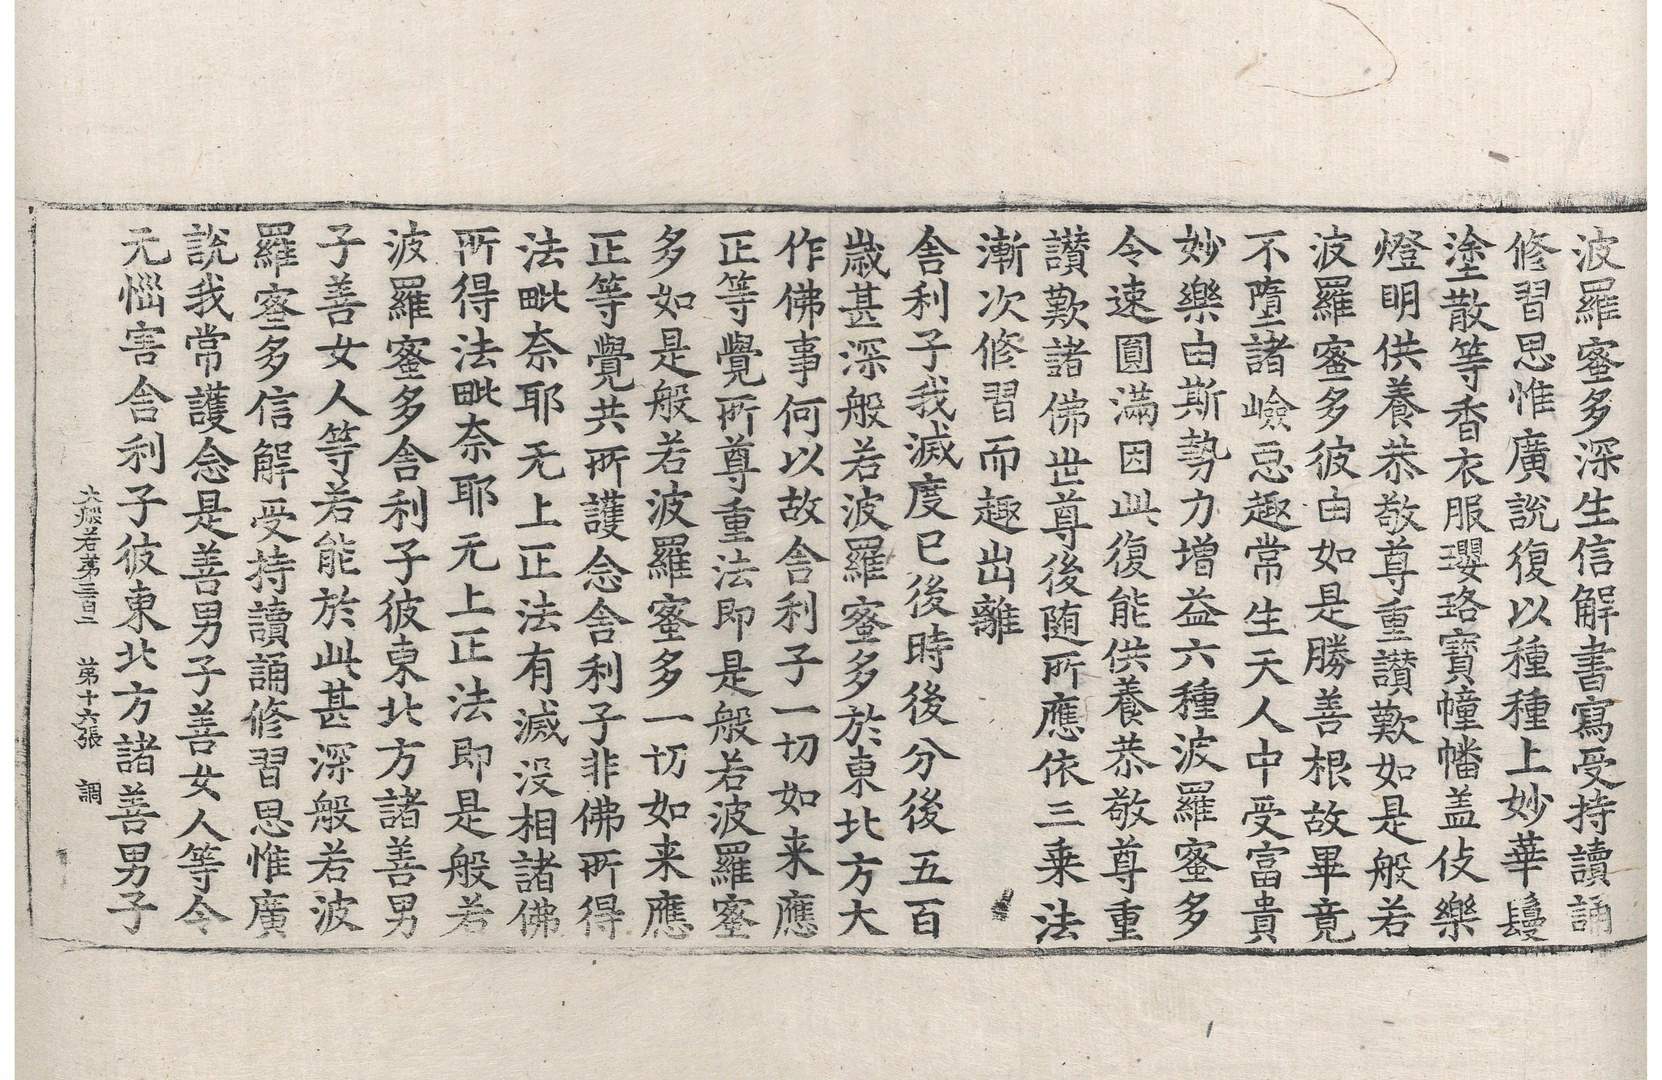 波羅蜜多深生信解書寫受持讀誦
修習思惟廣說復以種種上妙華鬘
塗散等香衣服瓔珞寶幢幡盖伎樂
燈明供養恭敬尊重讃歎如是般若
波羅蜜多彼由如是勝善根故畢竟
不墮諸嶮惡趣常生天人中受富貴
妙樂由斯勢力增益六種波羅蜜多
令速圓滿因此復能供養恭敬尊重
讃歎諸佛世尊後随所應依三乘法
漸次修習而趣出離
舍利子我滅度已後時後分後五百
歲甚深般若波羅蜜多於東北方大
作佛事何以故舍利子一切如来應
正等覺所尊重法即是般若波羅蜜
多如是般若波羅蜜多一切如来應
正等覺共所護念舍利子非佛所得
法毗奈耶无上正法有滅没相諸佛
所得法毗奈耶无上正法即是般若
波羅蜜多舍利子彼東北方諸善男
子善女人等若能於此甚深般若波
羅蜜多信解受持讀誦修習思惟廣
說我常護念是善男子善女人等令
无惱害舍利子彼東北方諸善男子
大般若第三百二　第十六張　調